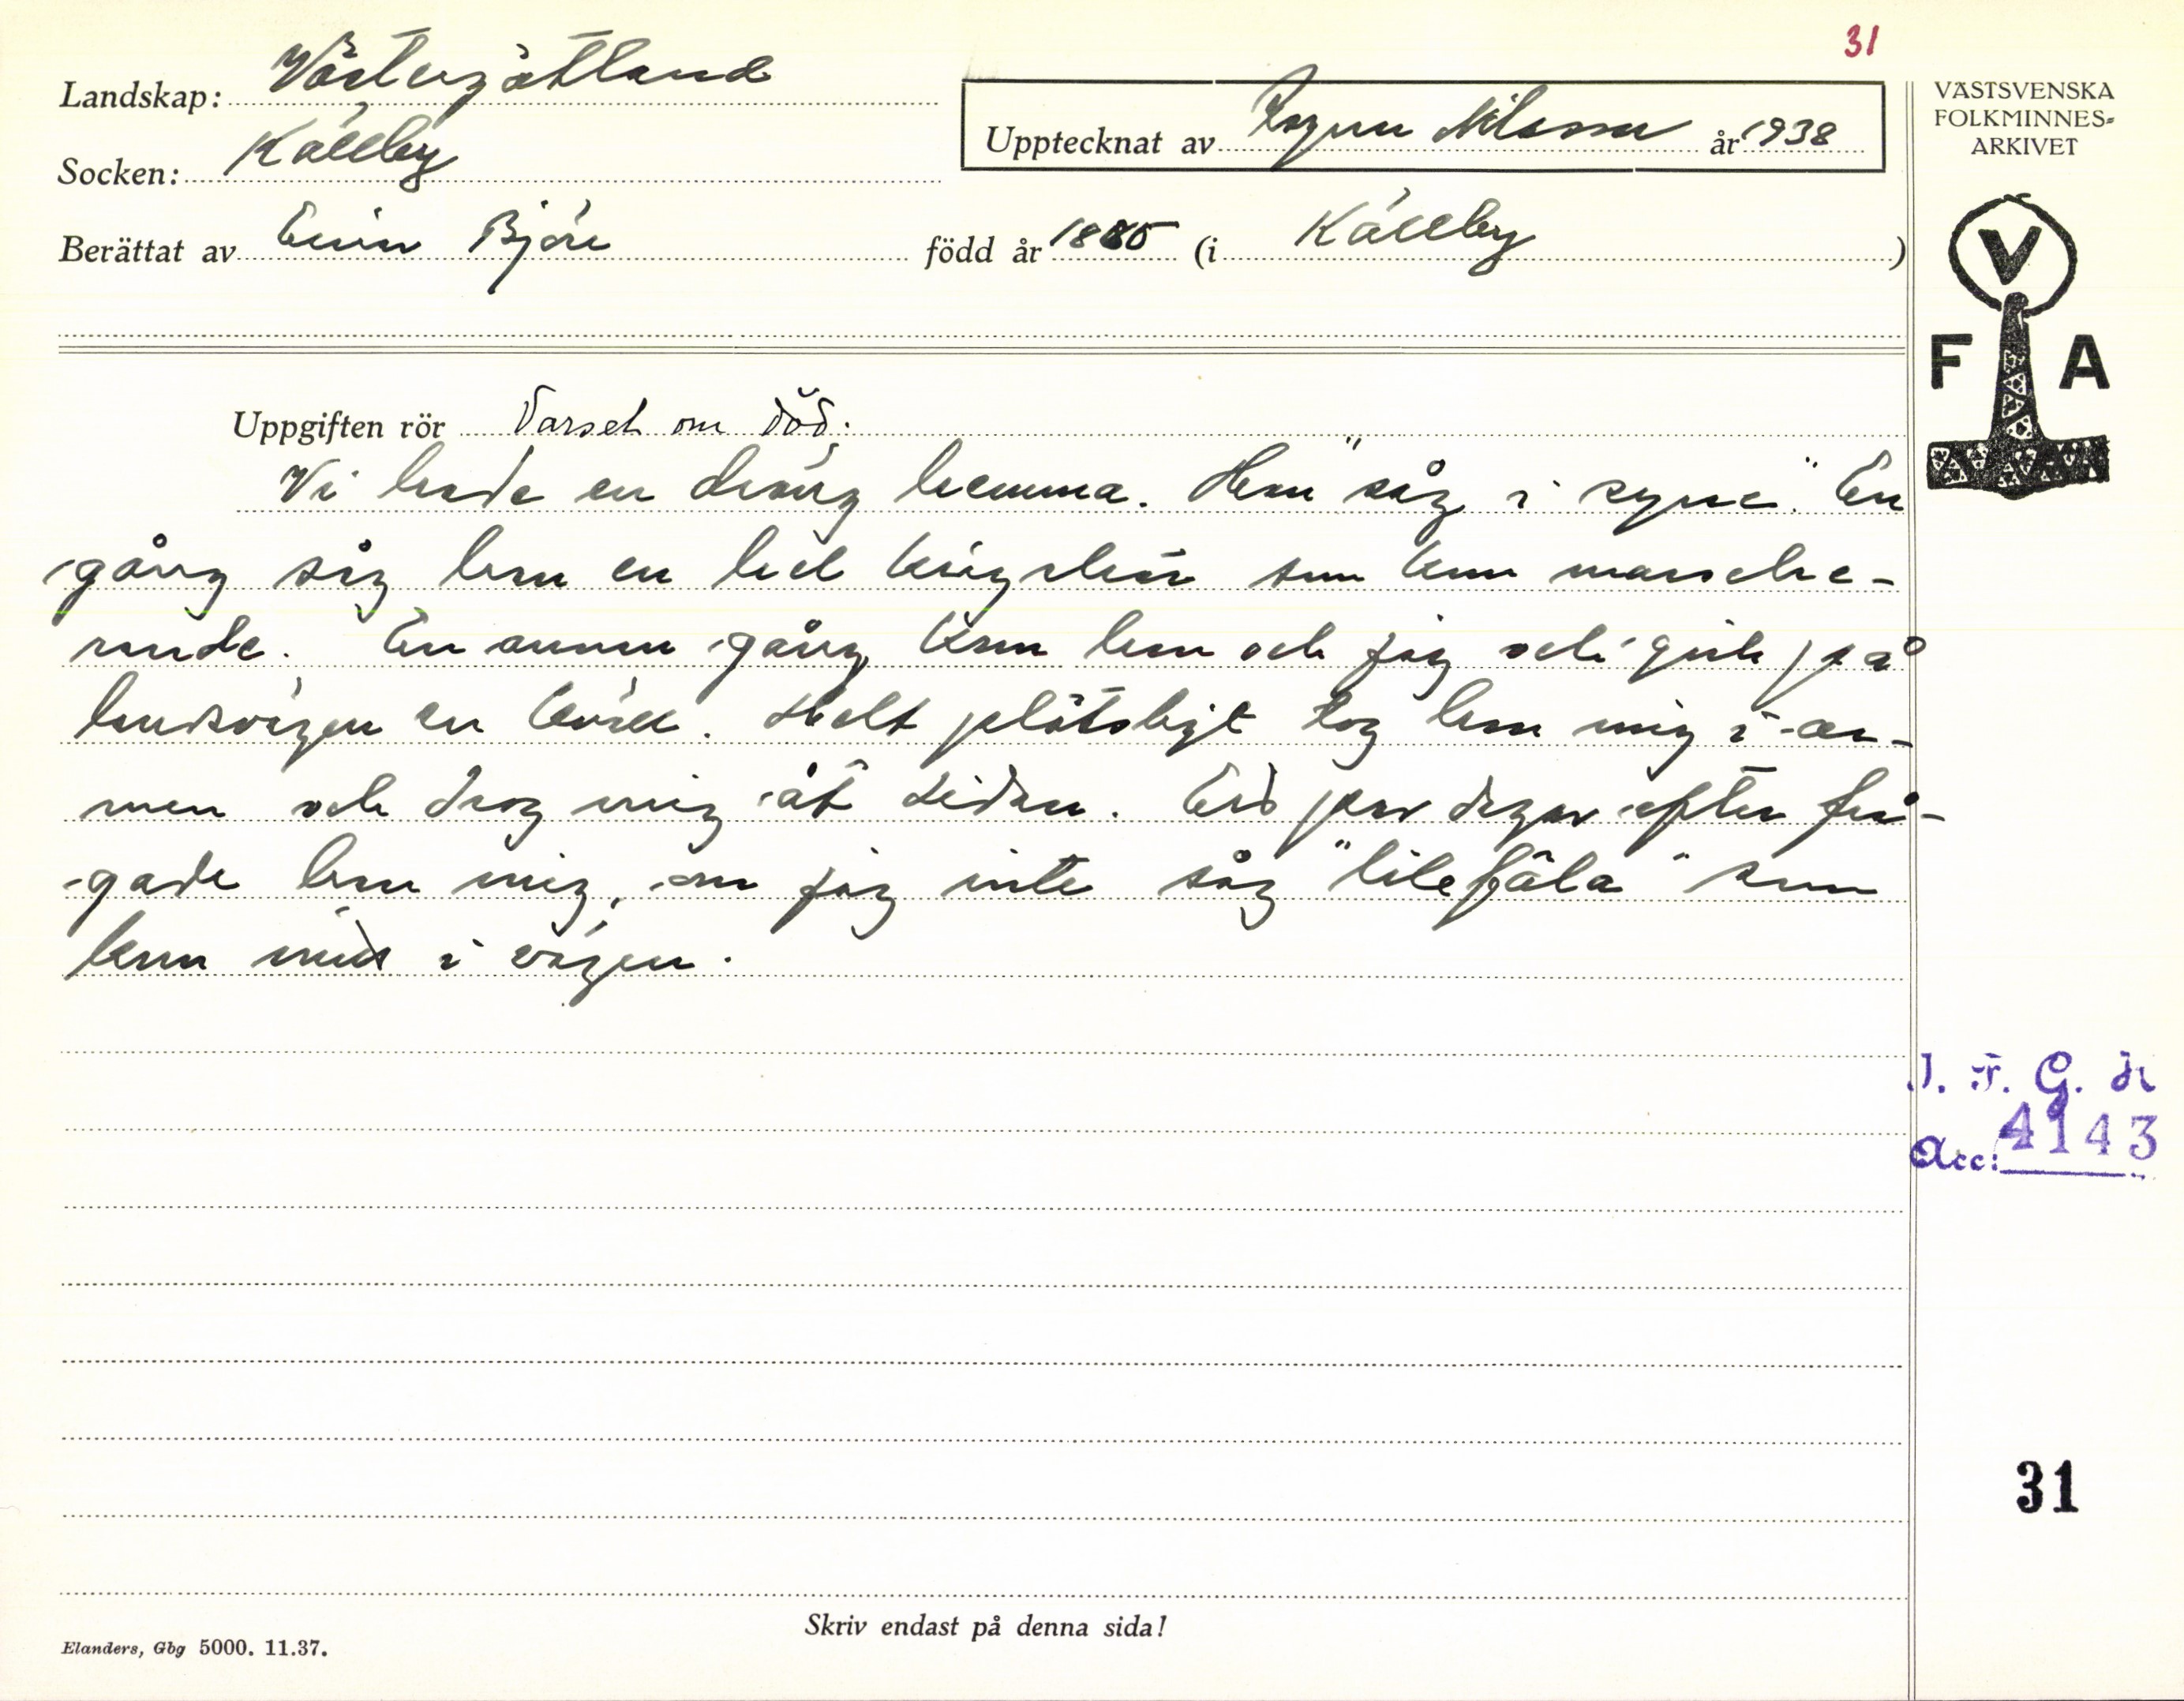 31
Landskap: Västergötland
Socken: Källby
Upptecknat av Ragnar Nilsson år 1938
Berättat av Björk född år 1885 (i Källby)
VÄSTSVENSKA
FOLKMINNES=
ARKIVET
V
F A
Uppgiften rör Varsel om död.
Vi hade en dräng hemma. Han "såg i syne". En
gång såg han en hel krigshär som kom marsche-
rande. En annan gång kom han och jag och gick på
landsvägen en kväll. Helt plötsligt tog han mig i ar-
men och drog mig åt sidan. Ett par dagar efter frå-
gade han mig, om jag inte såg "likefäla" som
kom mitt i vägen.
I. F. G. s
Acc: 4143
31
Skriv endast på denna sida!
Elanders, Gbg 5000. 11.37.